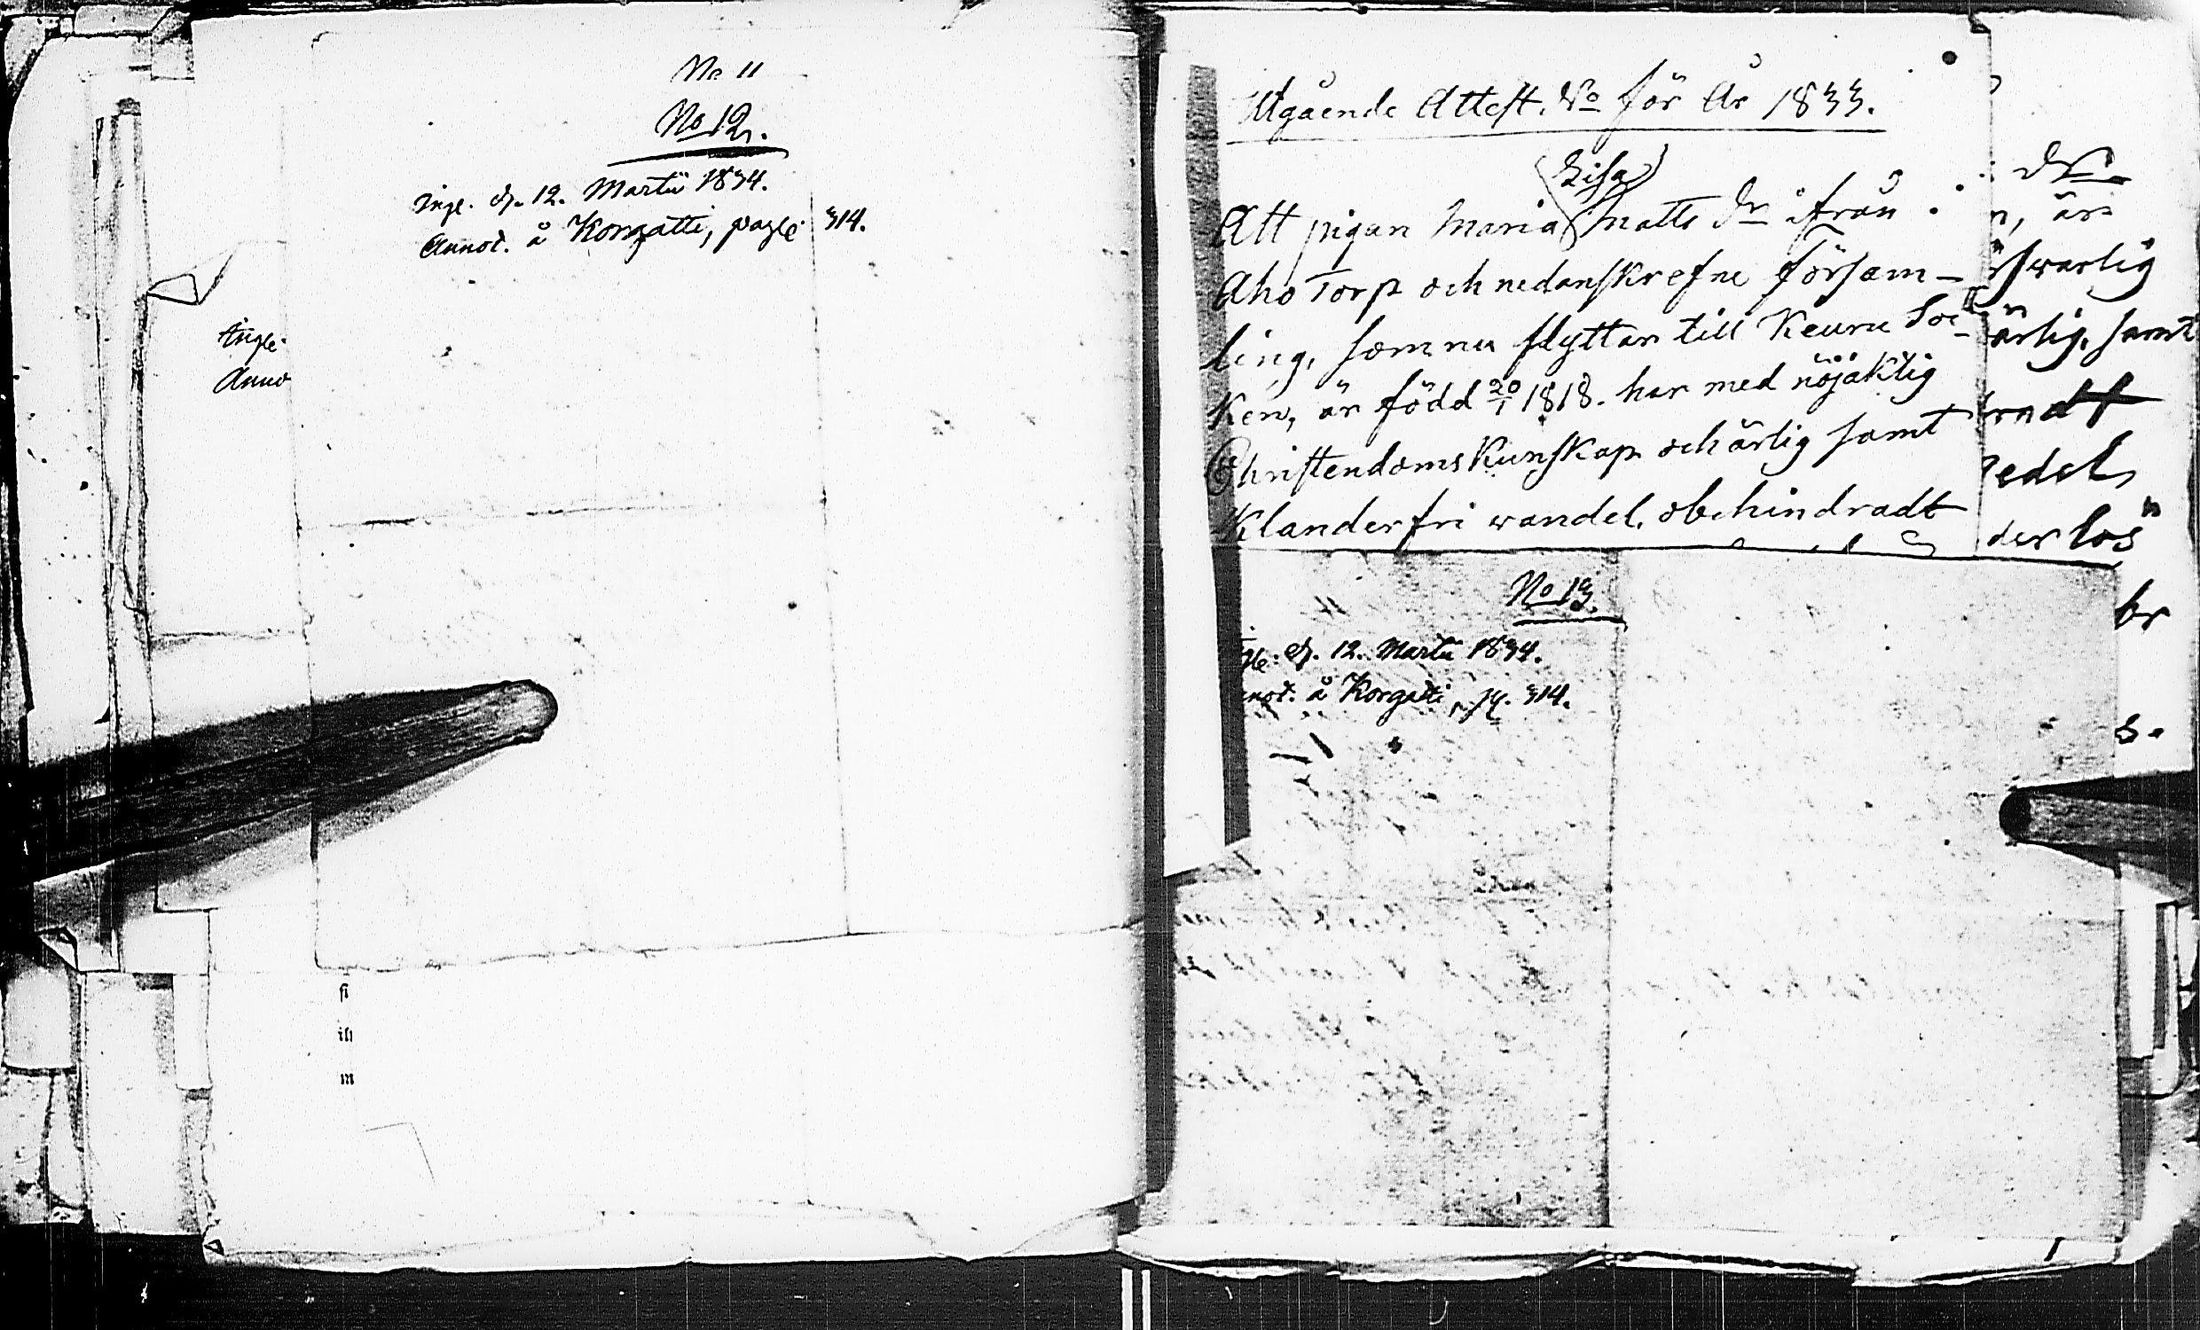 No 11
No 12.
Ingl. d. 12. Martii 1834.
Annot. å Korgatti, pag: 314.
Ingl:
Anno
Utgående Attest. No för År 1833.
Lisa
Att pigan Maria Matts Dr ifrån
Aho Torp och nedanskrefne försam-
ling, som nu flyttar till Keuru Soc-
ken, är född 20/1 1818. har med nöjaktig
Christendoms Kunskap och ärlig samt
Klanderfri wandel, obehindradt
Dr
n, är
swarlig
ärlig, samt
radt
edel
der lös
br
s.
No 13.
gl: d. 12. Martii 1834.
nnot. å Korgatti, pg. 314.